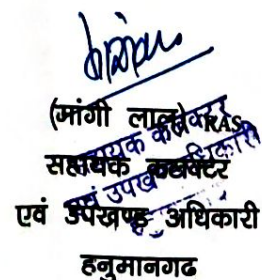 (मांगी लाल) RAS
सहायक कलक्टर
एवं उपखण्ड अधिकारी
हनुमानगढ
सहायक कलक्टर
एवं उपखण्ड अधिकारी